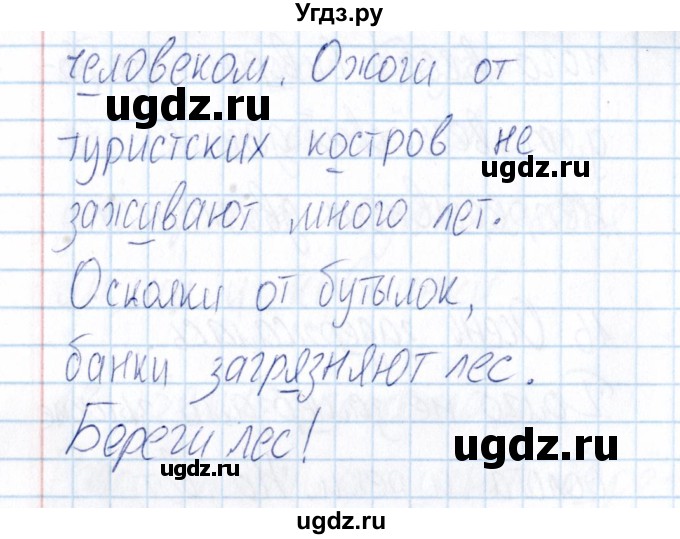 Угдз.ру
человеком. Ожоги от
ugdz.ru
туристских костров не
ugdz.ru
заживают много лет.
Осколки от бутылок,
ugdz.ru
банки загрязняют лес.
Береги лес!
ugdz.ru
ugdz.ru
ugdz.ru